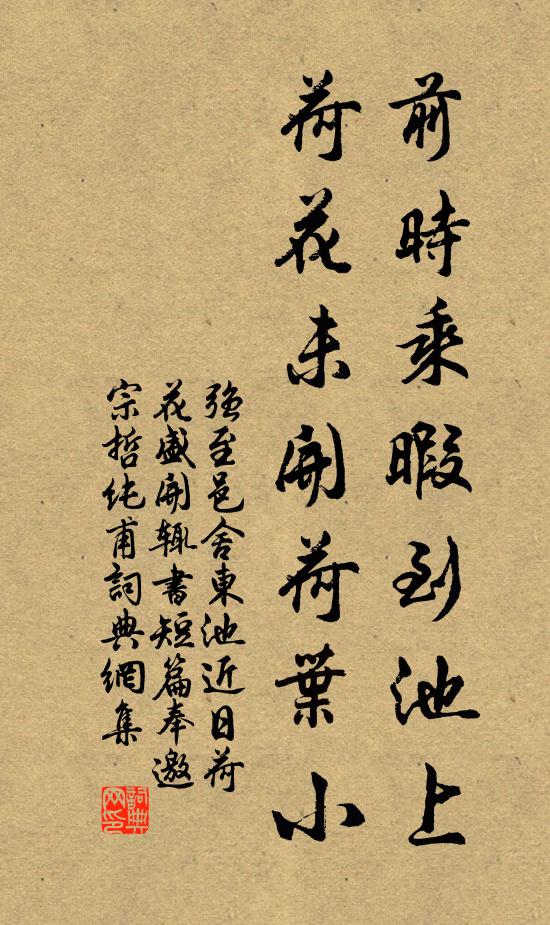 前時乘暇到池上
荷花未開荷葉小
強至邑舍東池近日荷
花盛開輒書短篇奉邀
宗哲純甫詞典網集
詞典
网印